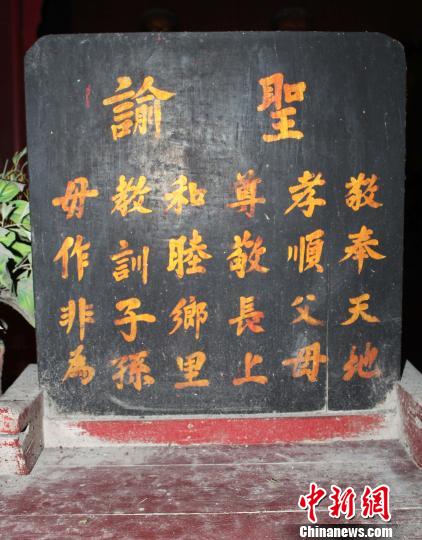 聖諭
敬奉天地
孝順父母
尊敬長上
和睦鄉里
教訓子孫
毋作非為
中新网
Chinanews.com